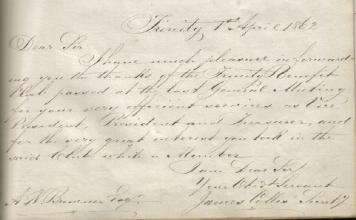 Trinity 1st April 1862
Dear Sir
I have much pleasure in forward-
ing you the thanks of the Trinity Benefit
Club passed at the last General Meeting
for your very efficient services as Vice
President, President and Treasurer, and
for the very great interest you took in the
said Club while a Member
I am Dear Sir
Your Obdt Servant
James Secrety
A W Esqr